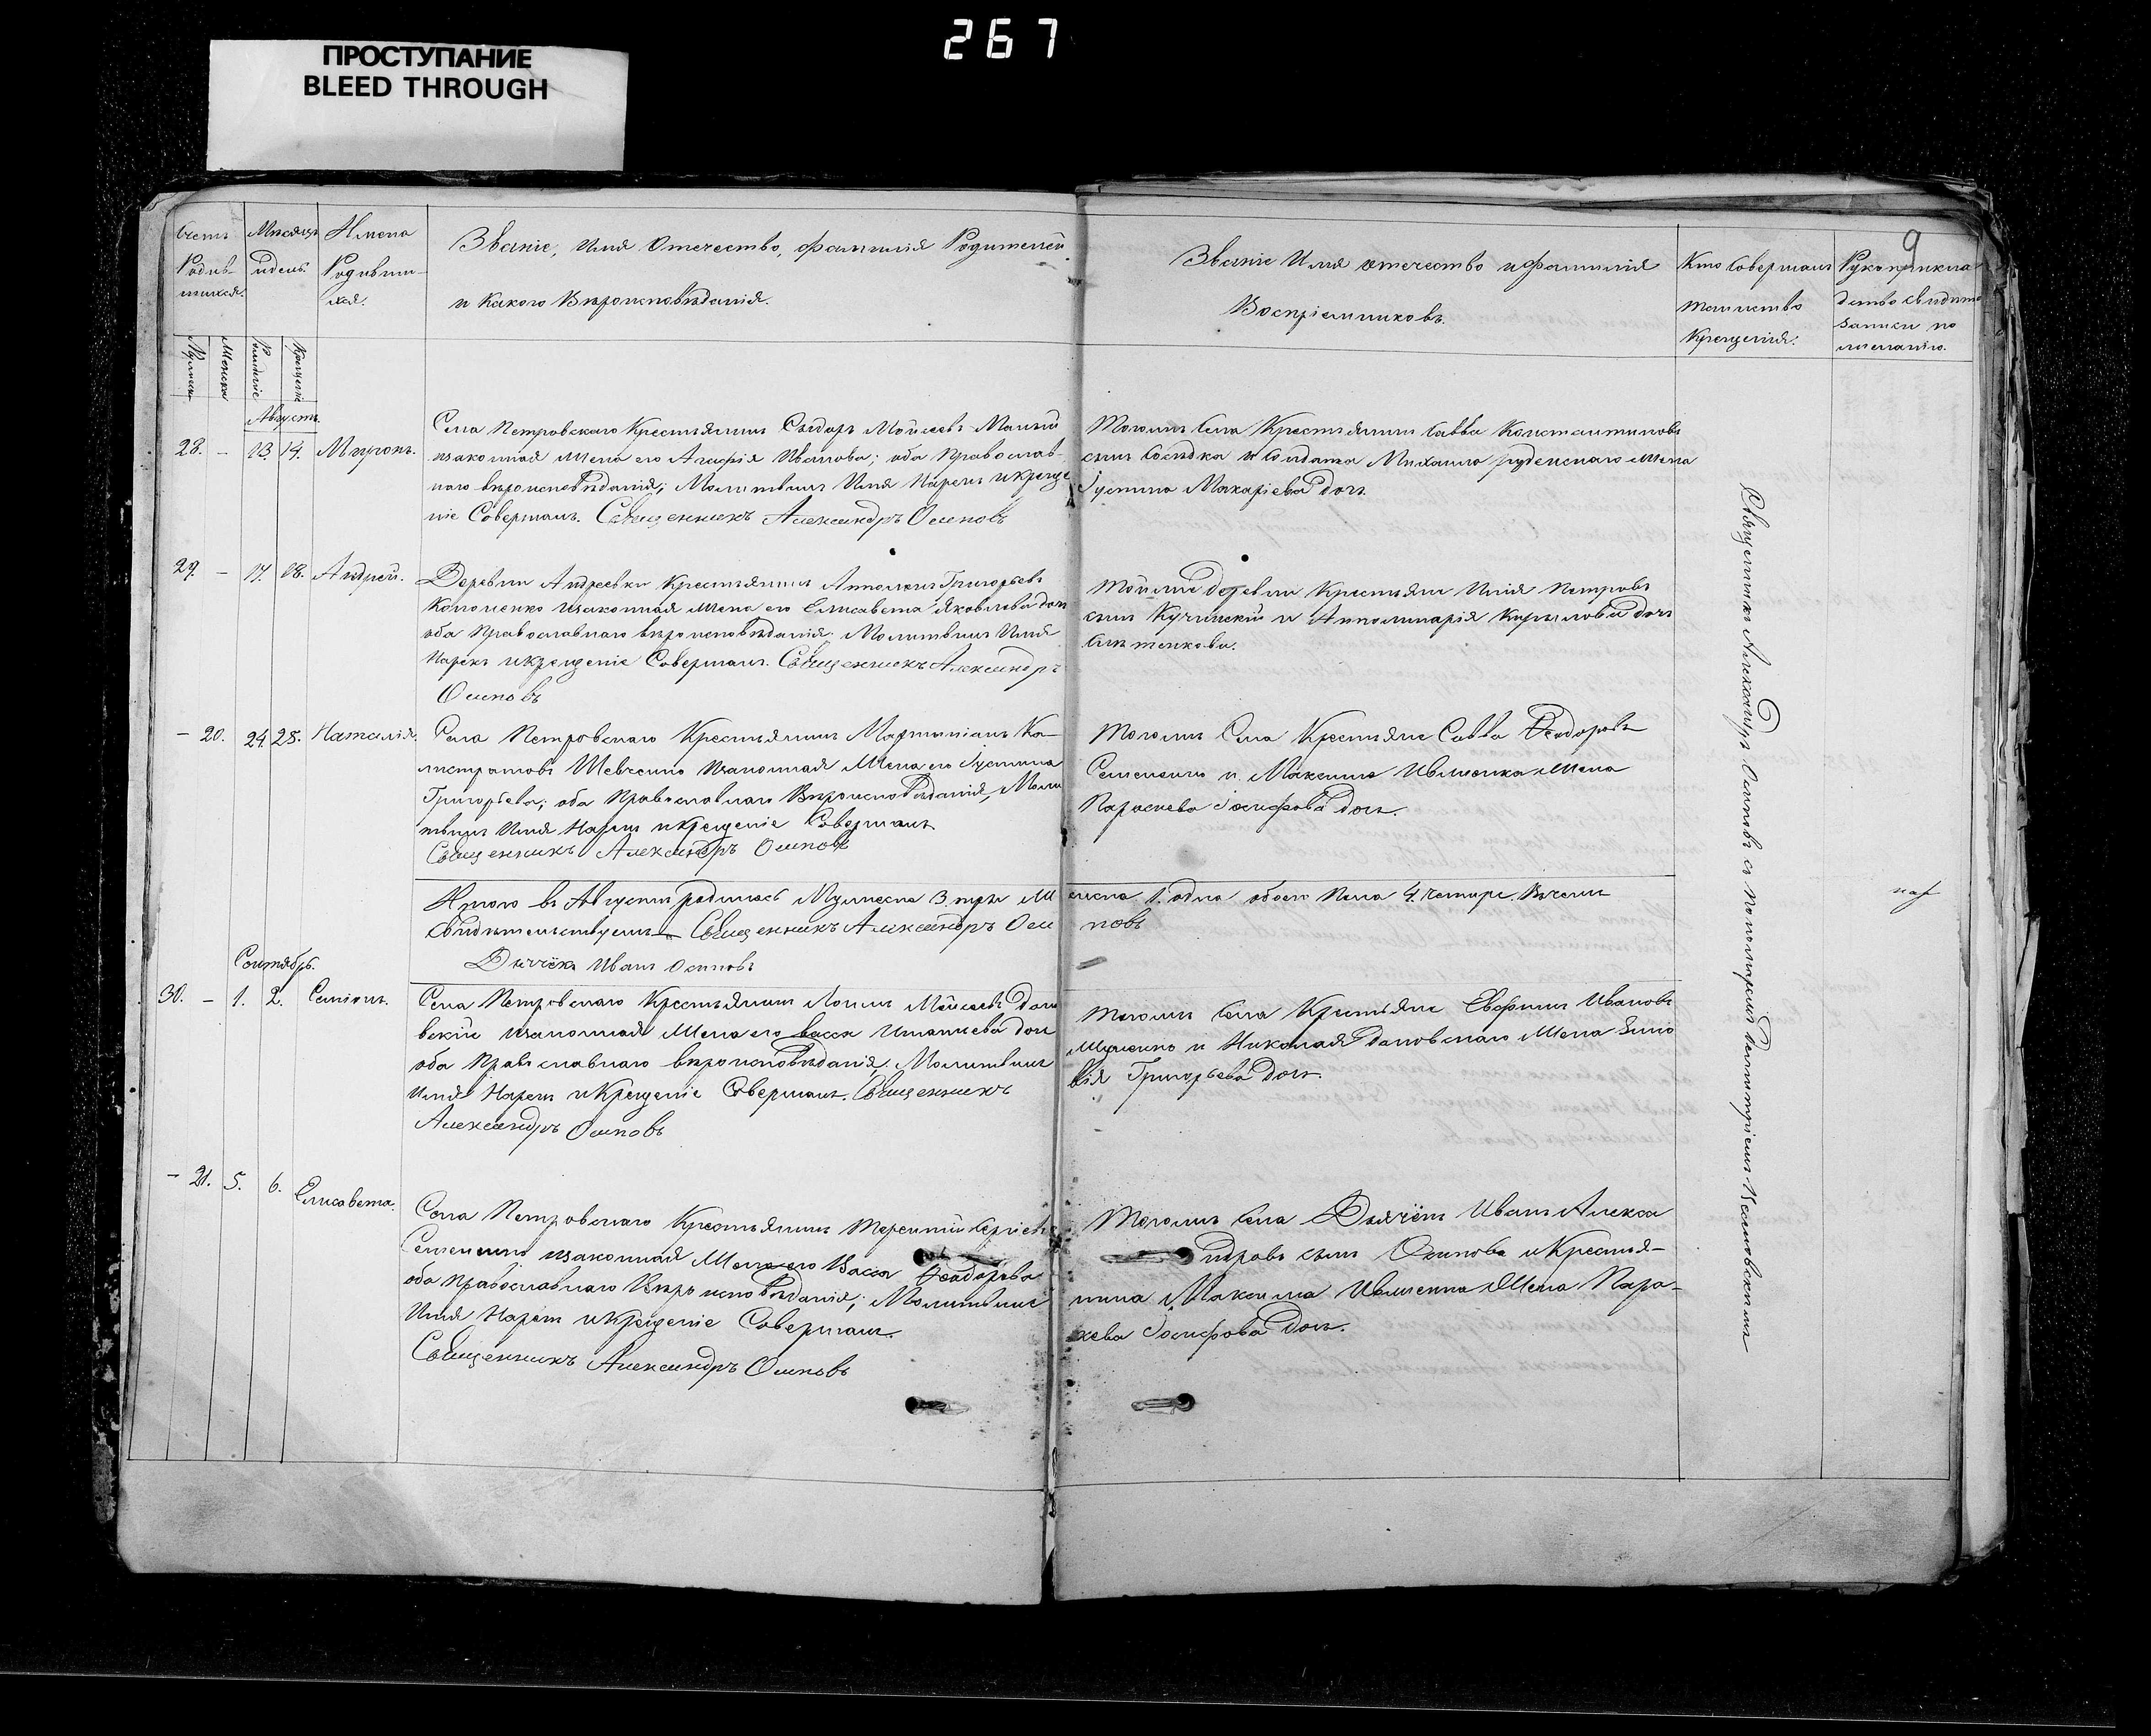 267
ПРОСТУПАНИЕ
BLEED THROUGH
9
Счетъ Родив-шихся.
Мѣсяцъ и день.
Имена Родивши-хся.
Званіе, Имя Отечество, фамилія Родителей
и Какого Вѣроисповѣданія.
Званіе Имя отечество и фамилія
Воспріемниковъ.
Кто совершалъ
таинство
Крещенія.
Рукоприкла
дство свидѣте
записи по
желанію.
Мужеска
Женска
Рожденіе
Крещеніе
Августъ.
28. – 13. 14. Миронъ.
Села Петровскаго Крестьянинъ Сидоръ Мойсеевъ
изаконная Жена его Агафія Иванова; оба Православ-
наго вѣроисповѣданія; Молитвилъ Имя Нарекъ и Креще
ніе Совершалъ. Священникъ Александръ Осиповъ
Тогожъ Села Крестьянинъ Савва Константиновъ
сынъ и Солдата Михаила Жена
Іустина Макаріева дочь.
29. – 17. 18. Андрей.
Деревни Андреевки Крестьянинъ Григорьевъ
Коломенко изаконная Жена его Елисавета Яковлева дочь
оба Православнаго вѣроисповѣданія; Молитвилъ Имя
Нарекъ и крещеніе Совершалъ. Священникъ Александръ
Осиповъ
Тойже деревни Крестьяне Илія Петровъ
сынъ Кучинскій и Апполинарія Кирылова дочь
– 20. 24. 25. Наталія.
Села Петровскаго Крестьянинъ Мартиніанъ Ка-
листратовъ Шевченко изаконная Жена его Іустина
Григорьева; оба Православнаго Вѣроисповѣданія, Моли
твилъ Имя Нарекъ и Крещеніе Совершалъ
Священникъ Александръ Осиповъ
Тогожъ Села Крестьяне Савва Ѳеодоровъ
Семененко и Максима Ивженка Жена
Параскева Іосифова дочь.
Итого въ Августѣ родилось Мужеска 3. три Женска 1. одна обоего Пола 4. четыре. Въ чемъ
Свидѣтельствуемъ Священникъ Александръ Осиповъ
Дьячёкъ Иванъ Осиповъ
Сентябрь.
30. – 1. 2. Семіонъ.
Села Петровскаго Крестьянинъ Мойсеевъ Дани
вскій изаконная Жена его Васса Игнатьева дочь
оба Православнаго вѣроисповѣданія; Молитвилъ
Имя Нарекъ и Крещеніе Совершалъ. Священникъ
Александръ Осиповъ
Тогожъ Села Крестьяне Евфимъ Ивановъ
и Николая Жена Зино
вія Григорьева дочь.
– 21. 5. 6. Елисавета.
Села Петровскаго Крестьянинъ Терентій Сергіевъ
Семененко изаконная Жена его Васса Ѳеодорова
оба Православнаго Вѣроисповѣданія; Молитвилъ
Имя Нарекъ и Крещеніе Совершалъ.
Священникъ Александръ Осиповъ
Тогожъ Села Дьячёкъ Иванъ Алекса
ндровъ сынъ Осиповъ и Крестья-
нина Максима Ивженка Жена Пара-
скева Іосифова дочь.
Священникъ Александръ Осиповъ съ Пономаремъ